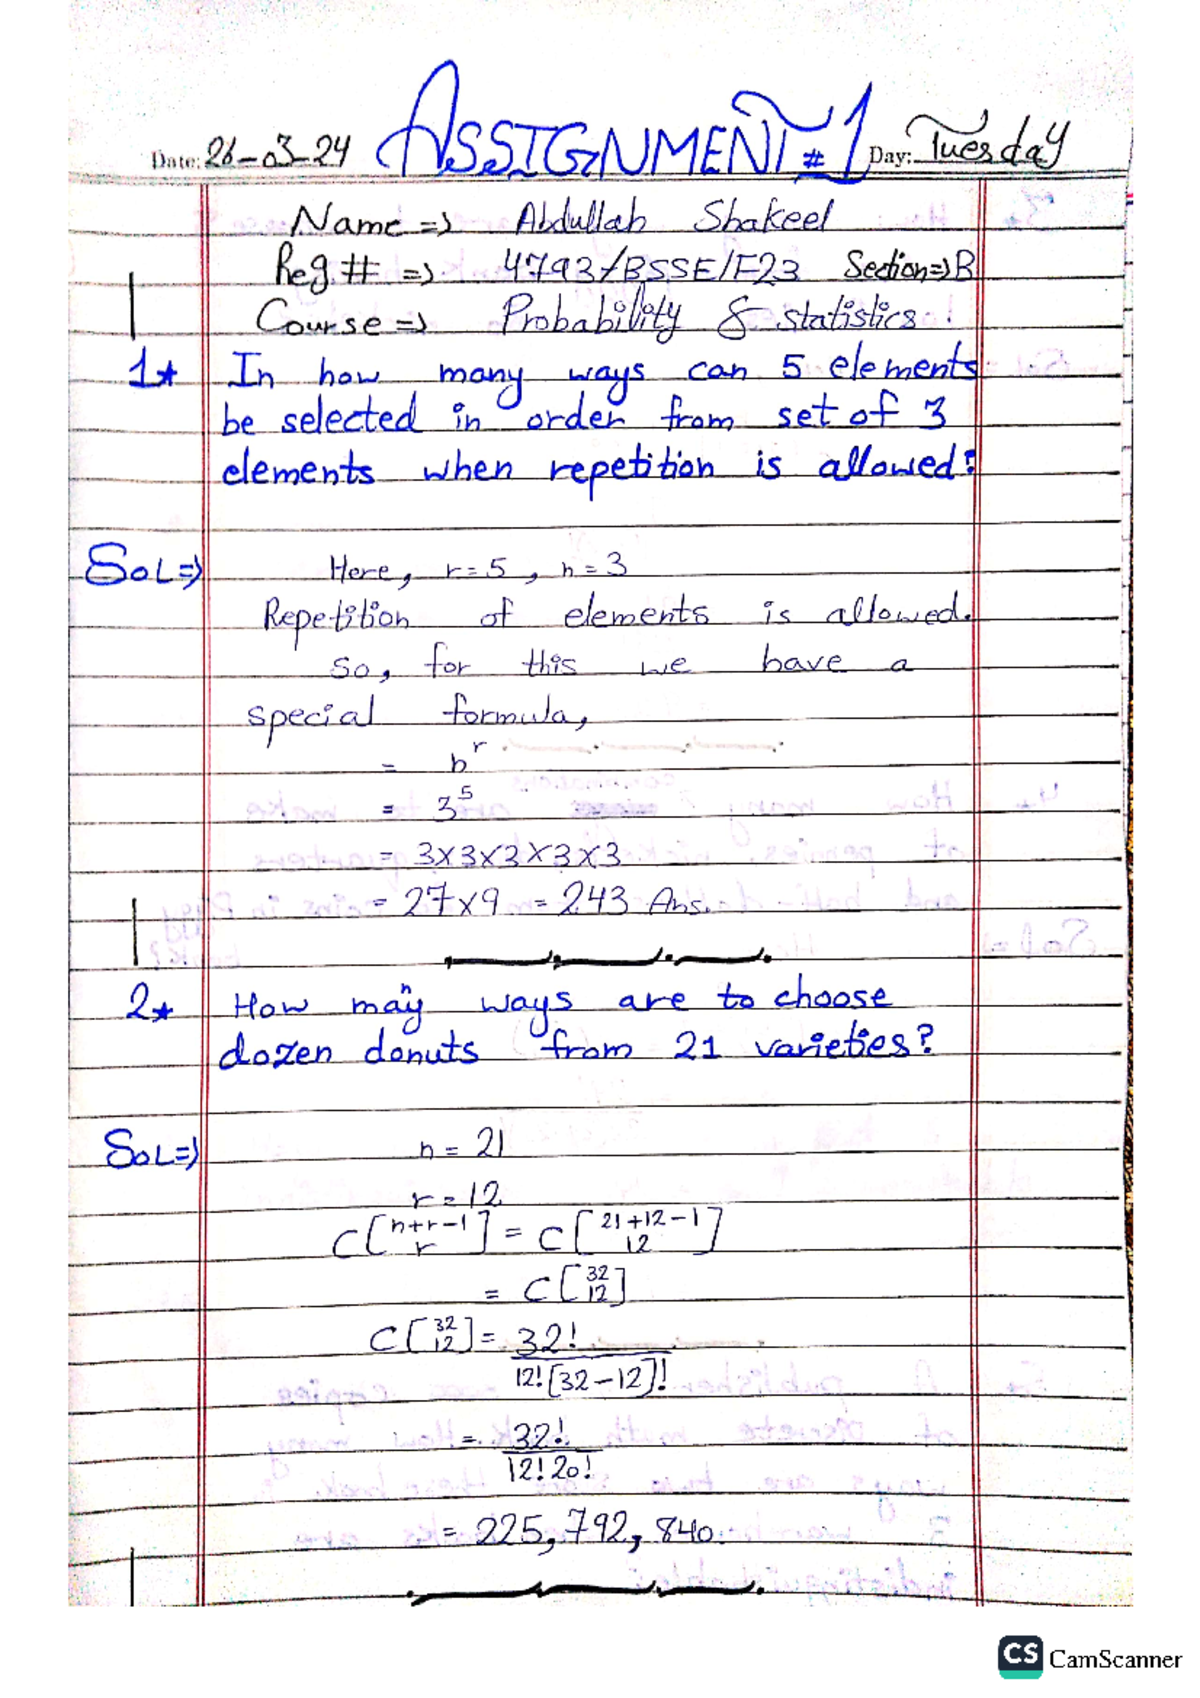 Date: 26-03-24 ASSIGNMENT #1 Day: Tuesday
Name => Abdullah Shakeel
Reg # => 4793/BSSE/F23 Section => B
Course => Probability & statistics.
1* In how many ways can 5 elements
be selected in order from set of 3
elements when repetition is allowed?
SOL => Here, r = 5, n = 3
Repetition of elements is allowed.
so, for this we have a
special formula,
= n^r
= 3^5
= 3×3×3×3×3
= 27×9 = 243 Ans.
2* How many ways are to choose
dozen donuts from 21 varieties?
SOL => n = 21
r = 12
C[n+r-1 r] = C[21+12-1 12]
= C[32 12]
C[32 12] = 32!
12![32-12]!
= 32!
12! 20!
= 225,792,840.
CS CamScanner